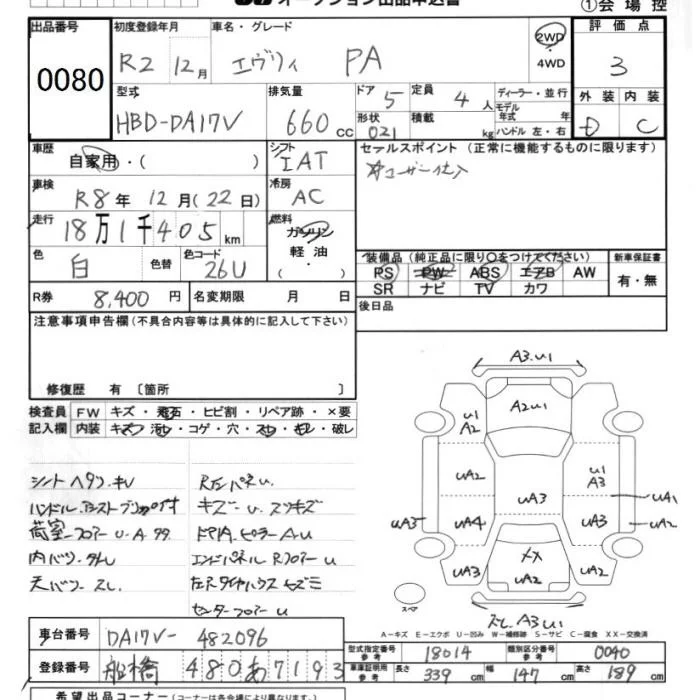 オークション出品申込書 ①会場控
出品番号 初度登録年月 車名・グレード 2WD 評価点
0080 R2 12月 エヴリイ PA 4WD 3
型式 排気量 ドア 定員 ディーラー・並行 外装 内装
HBD-DA17V 660cc 5 4人 モデル年式 年
形状 021 積載 kg ハンドル 左・右 D C
車歴 シフト セールスポイント(正常に機能するものに限ります)
自家用・( ) IAT ★ユーザー仕入
車検 R8年12月(22日) 冷房 AC
走行 18万1千405km 燃料 ガソリン
軽油
・( )
色 白 色替 色コード 26U
装備品(純正品に限り○をつけてください) 新車保証書
PS PW ABS エアB AW 有・無
SR ナビ TV カワ
R券 8,400円 名変期限 月 日 後日品
注意事項申告欄(不具合内容等は具体的に記入して下さい)
修復歴 有〔箇所 〕
検査員 FW キズ・飛石・ヒビ割・リペア跡・×要
記入欄 内装 キズ・汚レ・コゲ・穴・スレ・キレ・破レ
シートヘタリ・キレ
荷室・フロアー U・A
内バリ・
天バリ・スレ
キズ・U・スリキズ
エンドパネル Rフロアー U
センターフロアー U
A3.U1
U1
A2
A2U1
UA2
U1
A3
UA1
UA3
UA3
UA4
UA3
UA2
UA3
XX
UA2
UA2
スペア
A3U1
A-キズ E-エクボ U-凹み W-補修跡 S-サビ C-腐食 XX-交換済
車台番号 DA17V-482096
登録番号 船橋480あ7193
型式指定番号 参考 18014 類別区分番号 参考 0040
車庫証明用 参考 長さ 339cm 幅 147cm 高さ 189cm
希望出品コーナー(コーナーは各会場により異なります)